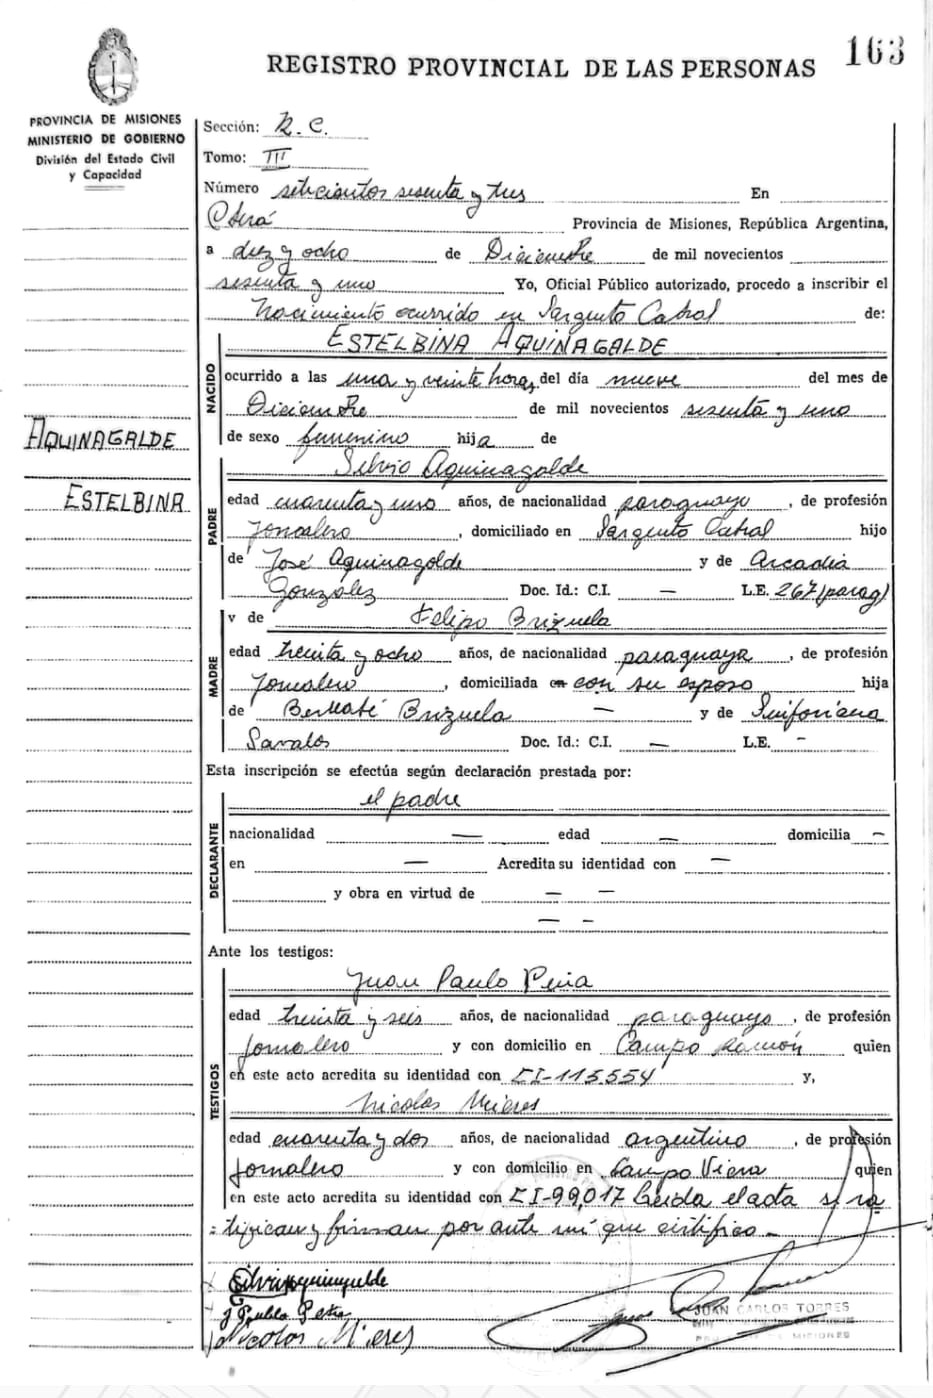 163
REGISTRO PROVINCIAL DE LAS PERSONAS
PROVINCIA DE MISIONES
MINISTERIO DE GOBIERNO
División del Estado Civil
y Capacidad
AQUINAGALDE
ESTELBINA
Sección: R. C.
Tomo: III
Número setecientos sesenta y tres En
Oberá Provincia de Misiones, República Argentina,
a diez y ocho de Diciembre de mil novecientos
sesenta y uno Yo, Oficial Público autorizado, procedo a inscribir el
Nacimiento ocurrido en Sargento Cabral de:
NACIDO
ESTELBINA AQUINAGALDE
ocurrido a las una y veinte horas del día nueve del mes de
Diciembre de mil novecientos sesenta y uno
de sexo femenino hija de
PADRE
Silvio Aquinagalde
edad cuarenta y uno años, de nacionalidad paraguayo, de profesión
Jornalero, domiciliado en Sargento Cabral hijo
de José Aquinagalde y de Arcadia
González Doc. Id.: C.I. — L.E. 267 (parag)
MADRE
y de Felipa Brizuela
edad treinta y ocho años, de nacionalidad paraguaya, de profesión
Jornalero, domiciliada en con su esposo hija
de Brizuela — y de Sinforiana
Doc. Id.: C.I. — L.E. —
Esta inscripción se efectúa según declaración prestada por:
DECLARANTE
el padre
nacionalidad — edad — domicilia —
en — Acredita su identidad con —
y obra en virtud de — —
— —
Ante los testigos:
TESTIGOS
Juan Paulo Peña
edad treinta y seis años, de nacionalidad paraguayo, de profesión
Jornalero y con domicilio en Campo Ramón quien
en este acto acredita su identidad con CI-115554 y,
Nicolas Mieres
edad cuarenta y dos años, de nacionalidad argentino, de profesión
Jornalero y con domicilio en Campo Viera quien
en este acto acredita su identidad con CI-99,017 Leída el acta se ra
=tifican y firman por ante mí que certifico -
Silvio Aquinagalde
J Pablo
Nicolos Mieres
JUAN CARLOS TORRES
MISIONES